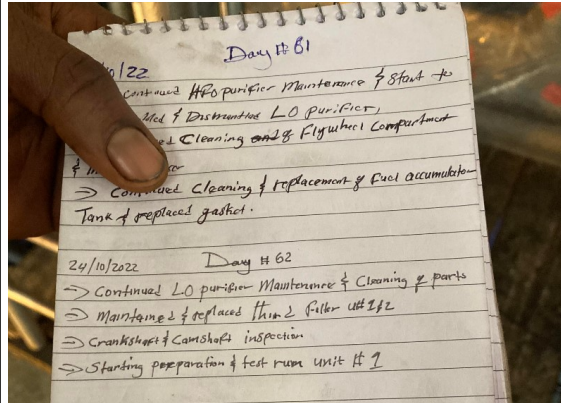 Day # 61
/22
Continued HFO purifier Maintenance & Start to
& Dismantled LO purifier,
Cleaning & Flywheel Compartment
&
⇒ Continued Cleaning & replacement of fuel accumulator
Tank & replaced gasket.
24/10/2022 Day # 62
⇒ Continued LO purifier Maintenance & Cleaning of parts
⇒ Maintained & replaced third filter u# 1&2
⇒ Crankshaft & Camshaft inspection
⇒ Starting preparation & test run unit # 1